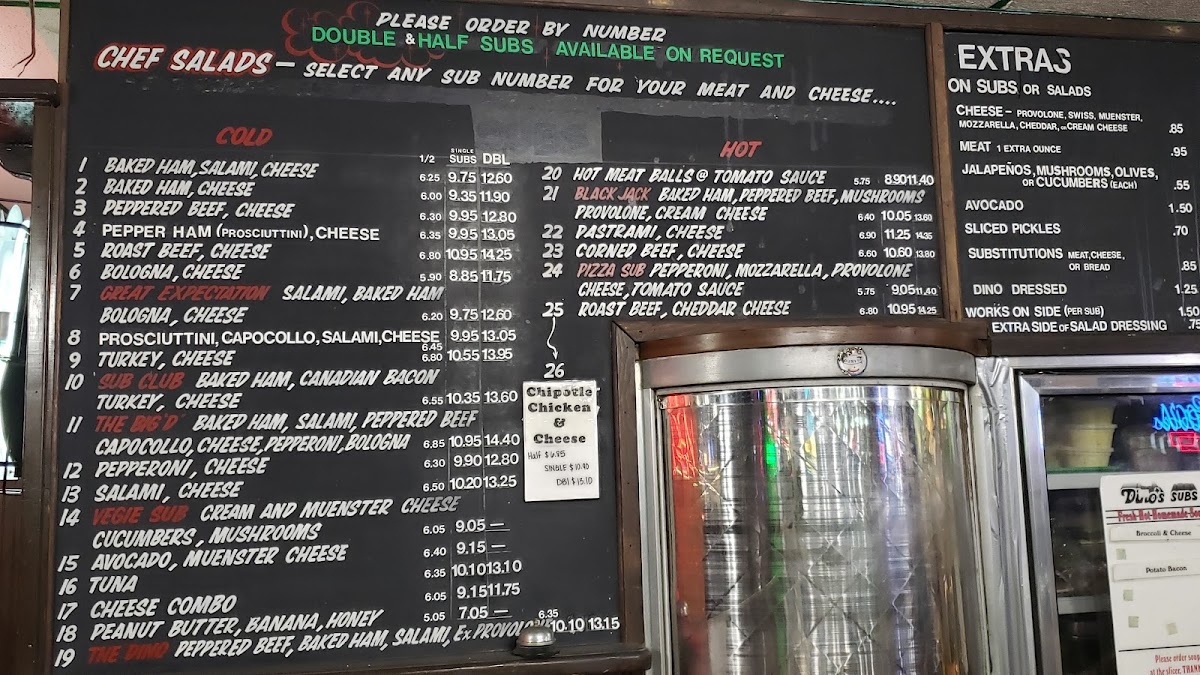 PLEASE ORDER BY NUMBER
DOUBLE & HALF SUBS AVAILABLE ON REQUEST
CHEF SALADS – SELECT ANY SUB NUMBER FOR YOUR MEAT AND CHEESE....
COLD
1/2 SINGLE SUBS DBL
1 BAKED HAM, SALAMI, CHEESE 6.25 9.75 12.60
2 BAKED HAM, CHEESE 6.00 9.35 11.90
3 PEPPERED BEEF, CHEESE 6.30 9.95 12.80
4 PEPPER HAM (PROSCIUTTINI), CHEESE 6.35 9.95 13.05
5 ROAST BEEF, CHEESE 6.80 10.95 14.25
6 BOLOGNA, CHEESE 5.90 8.85 11.75
7 GREAT EXPECTATION SALAMI, BAKED HAM
BOLOGNA, CHEESE 6.20 9.75 12.60
8 PROSCIUTTINI, CAPOCOLLO, SALAMI, CHEESE 6.45 9.95 13.05
9 TURKEY, CHEESE 6.80 10.55 13.95
10 SUB CLUB BAKED HAM, CANADIAN BACON
TURKEY, CHEESE 6.55 10.35 13.60
11 THE BIG 'D' BAKED HAM, SALAMI, PEPPERED BEEF
CAPOCOLLO, CHEESE, PEPPERONI, BOLOGNA 6.85 10.95 14.40
12 PEPPERONI, CHEESE 6.30 9.90 12.80
13 SALAMI, CHEESE 6.50 10.20 13.25
14 VEGIE SUB CREAM AND MUENSTER CHEESE
CUCUMBERS, MUSHROOMS 6.05 9.05 —
15 AVOCADO, MUENSTER CHEESE 6.40 9.15 —
16 TUNA 6.35 10.10 13.10
17 CHEESE COMBO 6.05 9.15 11.75
18 PEANUT BUTTER, BANANA, HONEY 5.05 7.05 —
19 THE DINO PEPPERED BEEF, BAKED HAM, SALAMI, Ex PROVOLONE 6.35 10.10 13.15
HOT
20 HOT MEAT BALLS @ TOMATO SAUCE 5.75 8.90 11.40
21 BLACK JACK BAKED HAM, PEPPERED BEEF, MUSHROOMS
PROVOLONE, CREAM CHEESE 6.40 10.05 13.60
22 PASTRAMI, CHEESE 6.90 11.25 14.35
23 CORNED BEEF, CHEESE 6.60 10.60 13.80
24 PIZZA SUB PEPPERONI, MOZZARELLA, PROVOLONE
CHEESE, TOMATO SAUCE 5.75 9.05 11.40
25 ROAST BEEF, CHEDDAR CHEESE 6.80 10.95 14.25
26
Chipotle
Chicken
&
Cheese
Half $6.85
SINGLE $10.90
DBL $13.10
EXTRAS
ON SUBS OR SALADS
CHEESE – PROVOLONE, SWISS, MUENSTER,
MOZZARELLA, CHEDDAR, or CREAM CHEESE .85
MEAT 1 EXTRA OUNCE .95
JALAPEÑOS, MUSHROOMS, OLIVES,
OR CUCUMBERS (EACH) .55
AVOCADO 1.50
SLICED PICKLES .70
SUBSTITUTIONS MEAT, CHEESE,
OR BREAD .85
DINO DRESSED 1.25
WORKS ON SIDE (PER SUB) 1.50
EXTRA SIDE OF SALAD DRESSING .75
DINO'S SUBS
Fresh Hot Homemade
Broccoli & Cheese
Potato Bacon
Please order soup
at the slicer. THANK